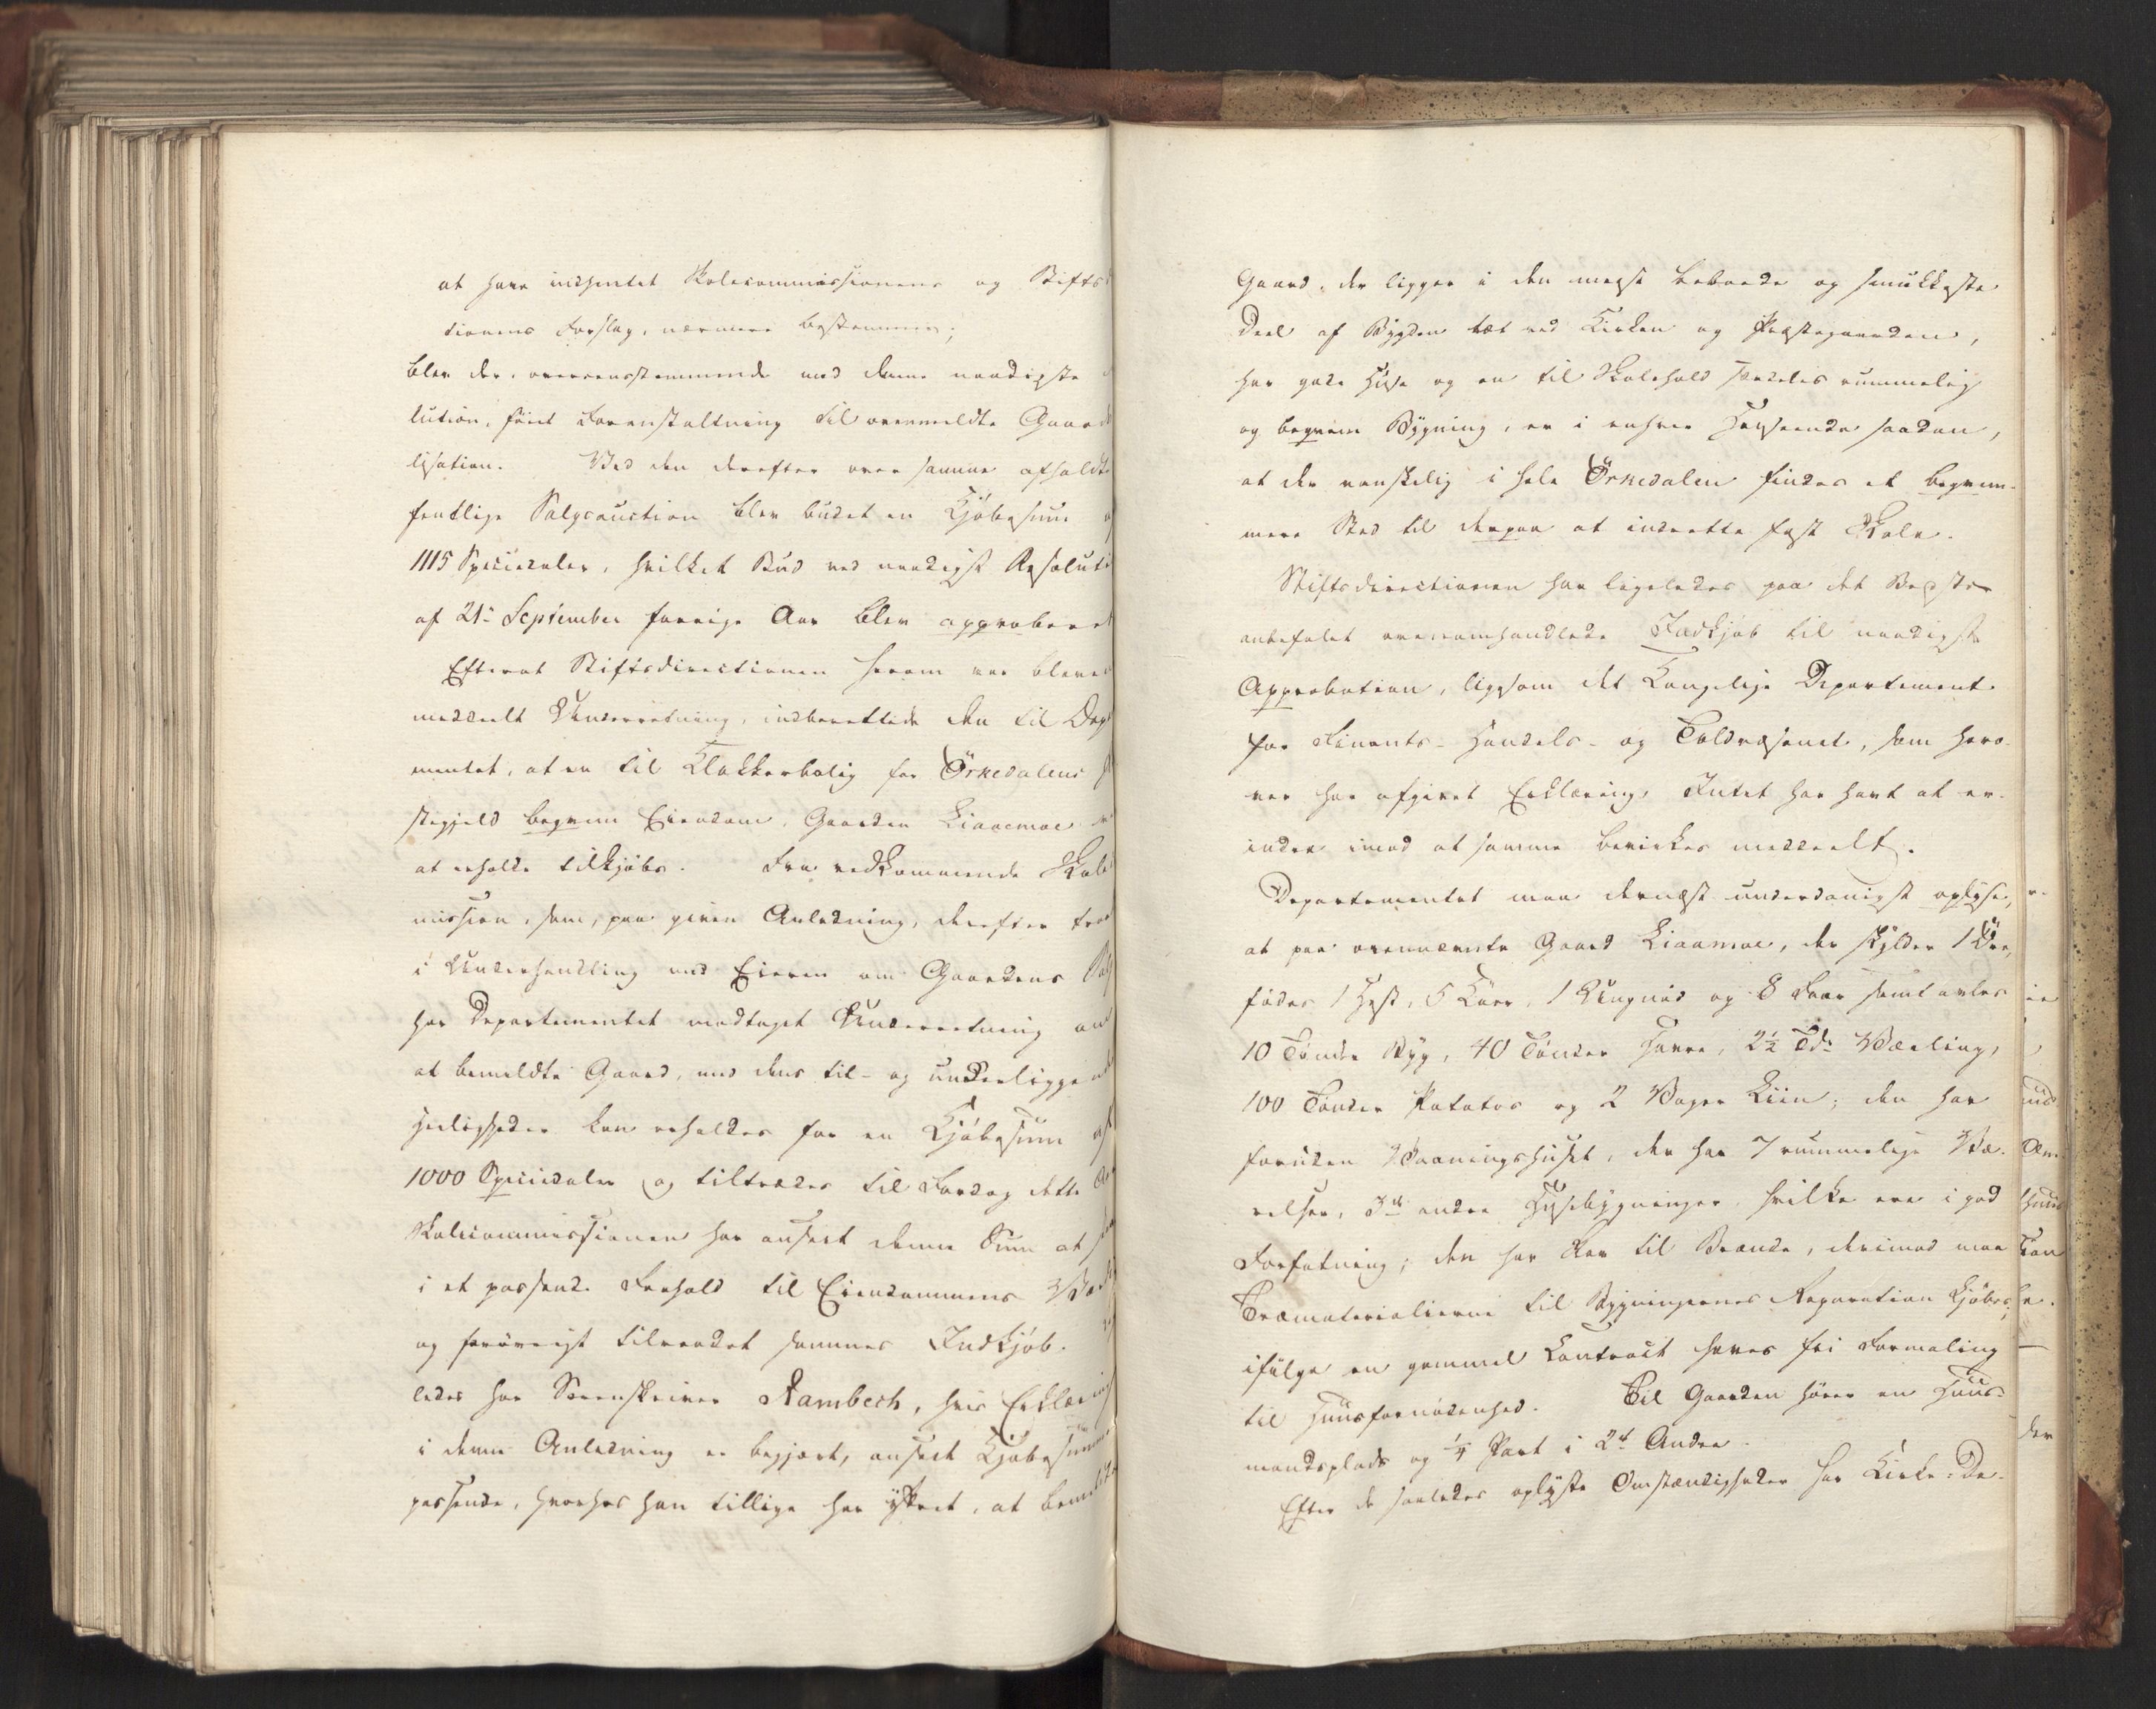 at have indhentet Skolecommissionens og Stifts
tionens Forslag, nærmere bestemmes;
blev der, overeensstemmende med denne naadigste
lution, føiet Foranstaltning til ovenmeldte Gaard
lisation. Ved den derefter over samme afholdte
fentlige Salgsauction blev budet en Kjøbesum
1115 Speciedaler, hvilket Bud ved naadigst Resoluti
af 21de September forrige Aar blev approberet
Efterat Stiftsdirectionen herom var bleven
meddeelt Underretning, indberettede den til Dep
mentet, at en til Klokkerbolig for Örkedalens
stegjeld beqvem Eiendom, Gaarden Liaaemoe
at erholde tilkjøbs. Fra vedkommende Skole
mission, som, paa given Anledning, derefter traa
i Underhandling med Eieren om Gaardens Salg
har Departementet modtaget Underretning om
at bemeldte Gaard, med dens til- og underliggende
Herligheder kan erholdes for en Kjøbesum af
1000 Speciedaler og tiltrædes til Fardag dette Aar
Skolecommissionen har anseet denne Sum at
i et passende Forhold til Eiendommens Værd
og forøvrigt tilraadet sammes Indkjøb.
ledes har Sorenskriver Rambech, hvis Erklæring
i denne Anledning er begjært, anseet Kjøbesummen
passende, hvorhos han tillige har yttret, at bemeldte
Gaard, der ligger i den meest beboede og smukkeste
Deel af Bygden tæt ved Kirken og Præstegaarden,
har gode Huse og en til Skolehold særdeles rummelig
og beqvem Bygning, er i enhver Henseende saadan,
at der vanskelig i hele Örkedalen findes et beqvem-
mere Sted til derpaa at indrette fast Skole.
Stiftsdirectionen har ligeledes paa det Bedste
anbefalet ovenomhandlede Indkjøb til naadigst
Approbation, ligesom det Kongelige Departement
for Finants- Handels- og Toldvæsenet, som hero-
ver har afgivet Erklæring, Intet har havt at er-
indre imod at samme bevirkes meddeelt.
Departementet maa dernæst underdanigst oplyse,
at paa ovennævnte Gaard Liaamoe, der skylder 1 Øre,
fødes 1 Hest, 5 Køer, 1 Ungnød og 8 Faar samt avles
10 Tønder Byg, 40 Tønder Havre, 2½ Tdr Bælling,
100 Tønder Potatos og 2 Voger Liin; den har
foruden Vaaningshuset, der har 7 rummelige Væ-
relser, 3de andre Huusebygninger, hvilke ere i god
Forfatning; den har Skov til Brænde, derimod maa
Træmaterialierne til Bygningernes Reparation kjøbes;
ifølge en gammel Contract haves fri Formaling
til Huusfornødenhed. Til Gaarden hører en Huus-
mandsplads og ¼ Part i 2de Andre.
Efter de saaledes oplyste Omstændigheder har Kirke-De-